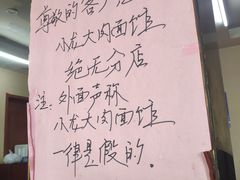 尊敬的客户
小龙大肉面馆
绝无分店
注:外面声称
小龙大肉面馆
一律是假的.